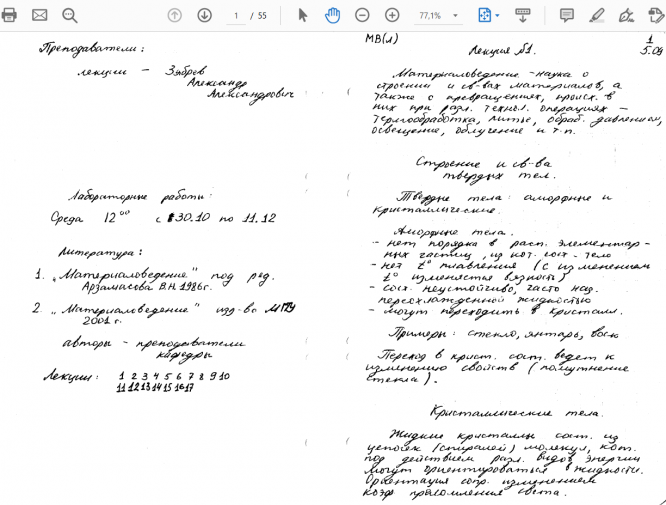 1 / 55
77,1%
Преподаватели:
лекции – Зябрев
Александр
Александрович
Лабораторные работы:
Среда 12⁰⁰ с 30.10 по 11.12
Литература:
1. „Материаловедение" под ред.
Арзамасова В.Н. 1986г.
2. „Материаловедение" изд-во МГТУ
2001 г.
авторы – преподаватели
кафедры
Лекции: 1 2 3 4 5 6 7 8 9 10
11 12 13 14 15 16 17
МВ(Л)
1
5.09
Лекция №1.
Материаловедение – наука о
строении и св-вах материалов, а
также о превращениях, происх. в
них при разл. технол. операциях –
термообработка, литье, обраб. давлением,
освещение, облучение и т.п.
Строение и св-ва
твердых тел.
Твердые тела: аморфные и
кристаллические.
Аморфные тела.
– нет порядка в расп. элементар-
ных частиц, из кот. сост. тело
– нет t° плавления (с изменением
t° изменяется вязкость)
– сост. неустойчиво, часто наз.
переохлажденной жидкостью
– могут переходить в кристалл.
Примеры: стекло, янтарь, воск
Переход в крист. сост. ведет к
изменению свойств (помутнение
стекла).
Кристаллические тела.
Жидкие кристаллы сост. из
цепочек (спиралей) молекул, кот.
под действием разл. видов энергии
могут ориентироваться в жидкости.
Ориентация сопр. изменением
коэф преломления света.